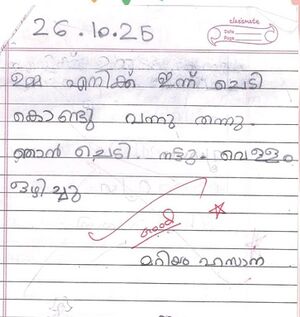 26.10.25
classmate
Date
Page
ഉമ്മ എനിക്ക് ഇന്ന് ചെടി
കൊണ്ടു വന്നു തന്നു.
ഞാൻ ചെടി. നട്ടു. വെള്ളം
ഒഴിച്ചു
Good
മറിയം ഹസാന